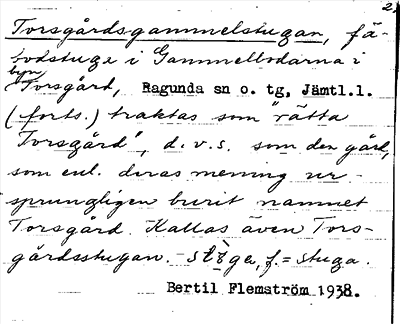 2.
Torsgårdsgammelstugan, fä-
bodstuga i Gammelbodarna i
byn
Torsgård, Ragunda sn o. tg, Jämtl.l.
(forts.) traktas som "rätta
Torsgård", d.v.s. som den gård,
som enl. deras mening ur-
sprungligen burit namnet
Torsgård. Kallas även Tors-
gårdsstugan. f. = stuga.
Bertil Flemström 1938.